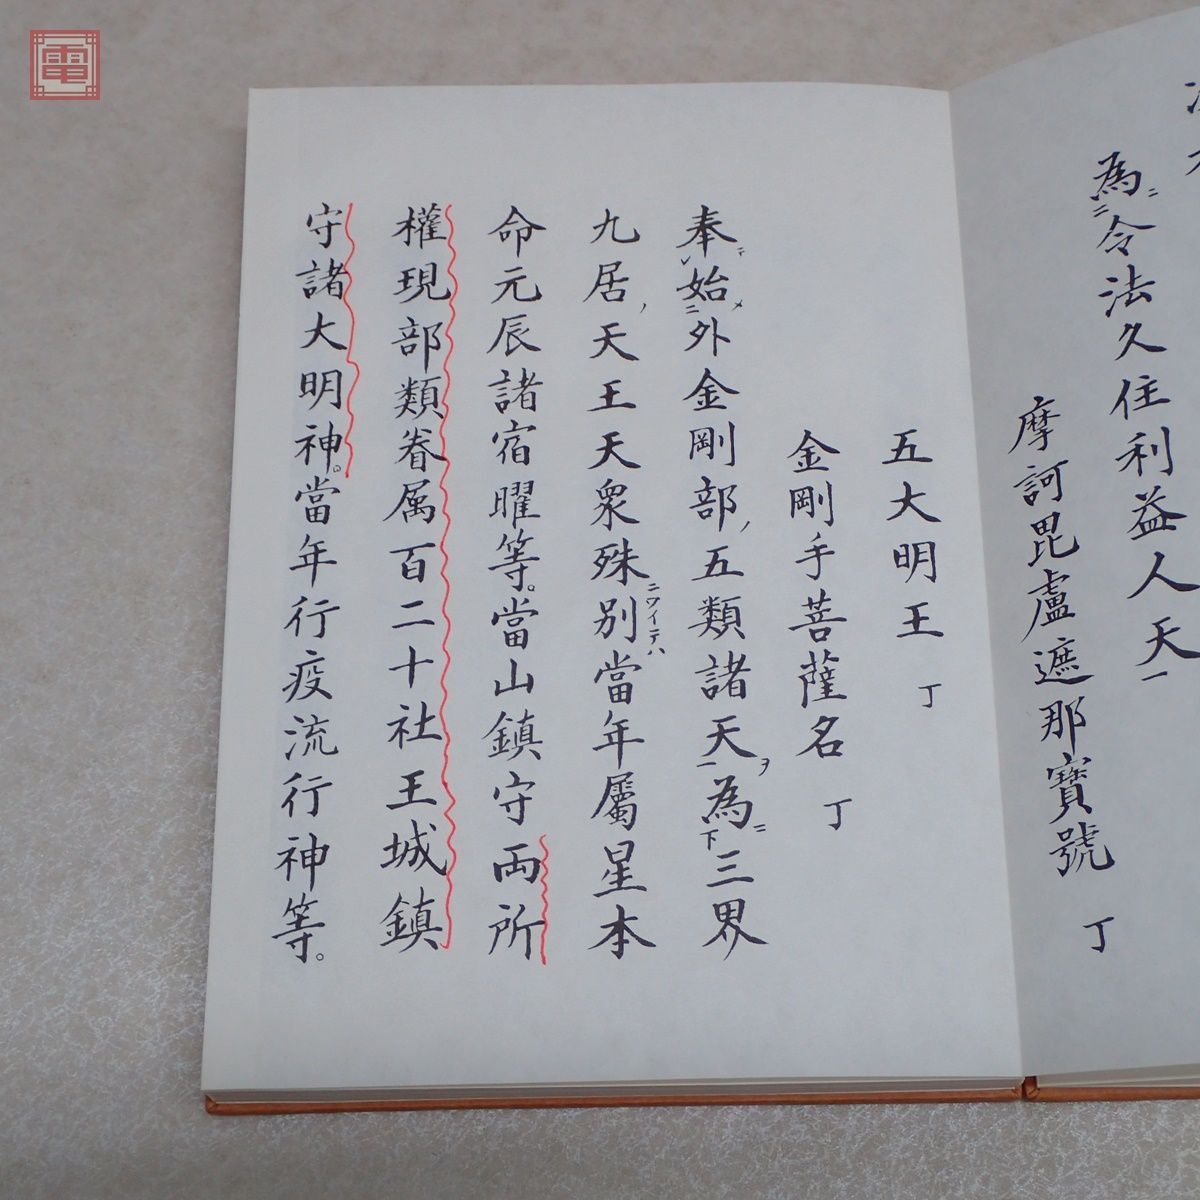 為ニ令法久住利益人天一
摩訶毘盧遮那寶號 丁
五大明王 丁
金剛手菩薩名 丁
奉始外金剛部、五類諸天為三界
九居、天王天衆殊ニワイテハ別當年屬星本
命元辰諸宿曜等。當山鎮守両所
權現部類眷属百二十社王城鎮
守諸大明神。當年行疫流行神等。
電